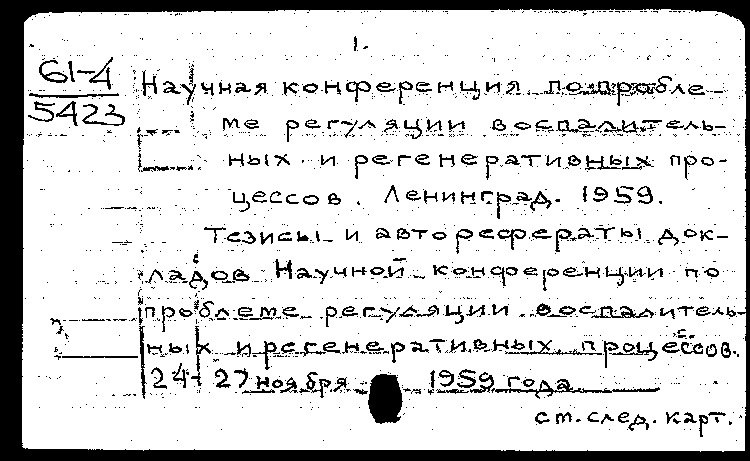 1.
61-4
5423
Научная конференция по пробле-
ме регуляции воспалитель-
ных и регенеративных про-
цессов. Ленинград. 1959.
Тезисы и авторефераты док-
ладов Научной конференции по
проблеме регуляции воспалитель-
ных и регенеративных процессов.
24-27 ноября 1959 года
см. след. карт.